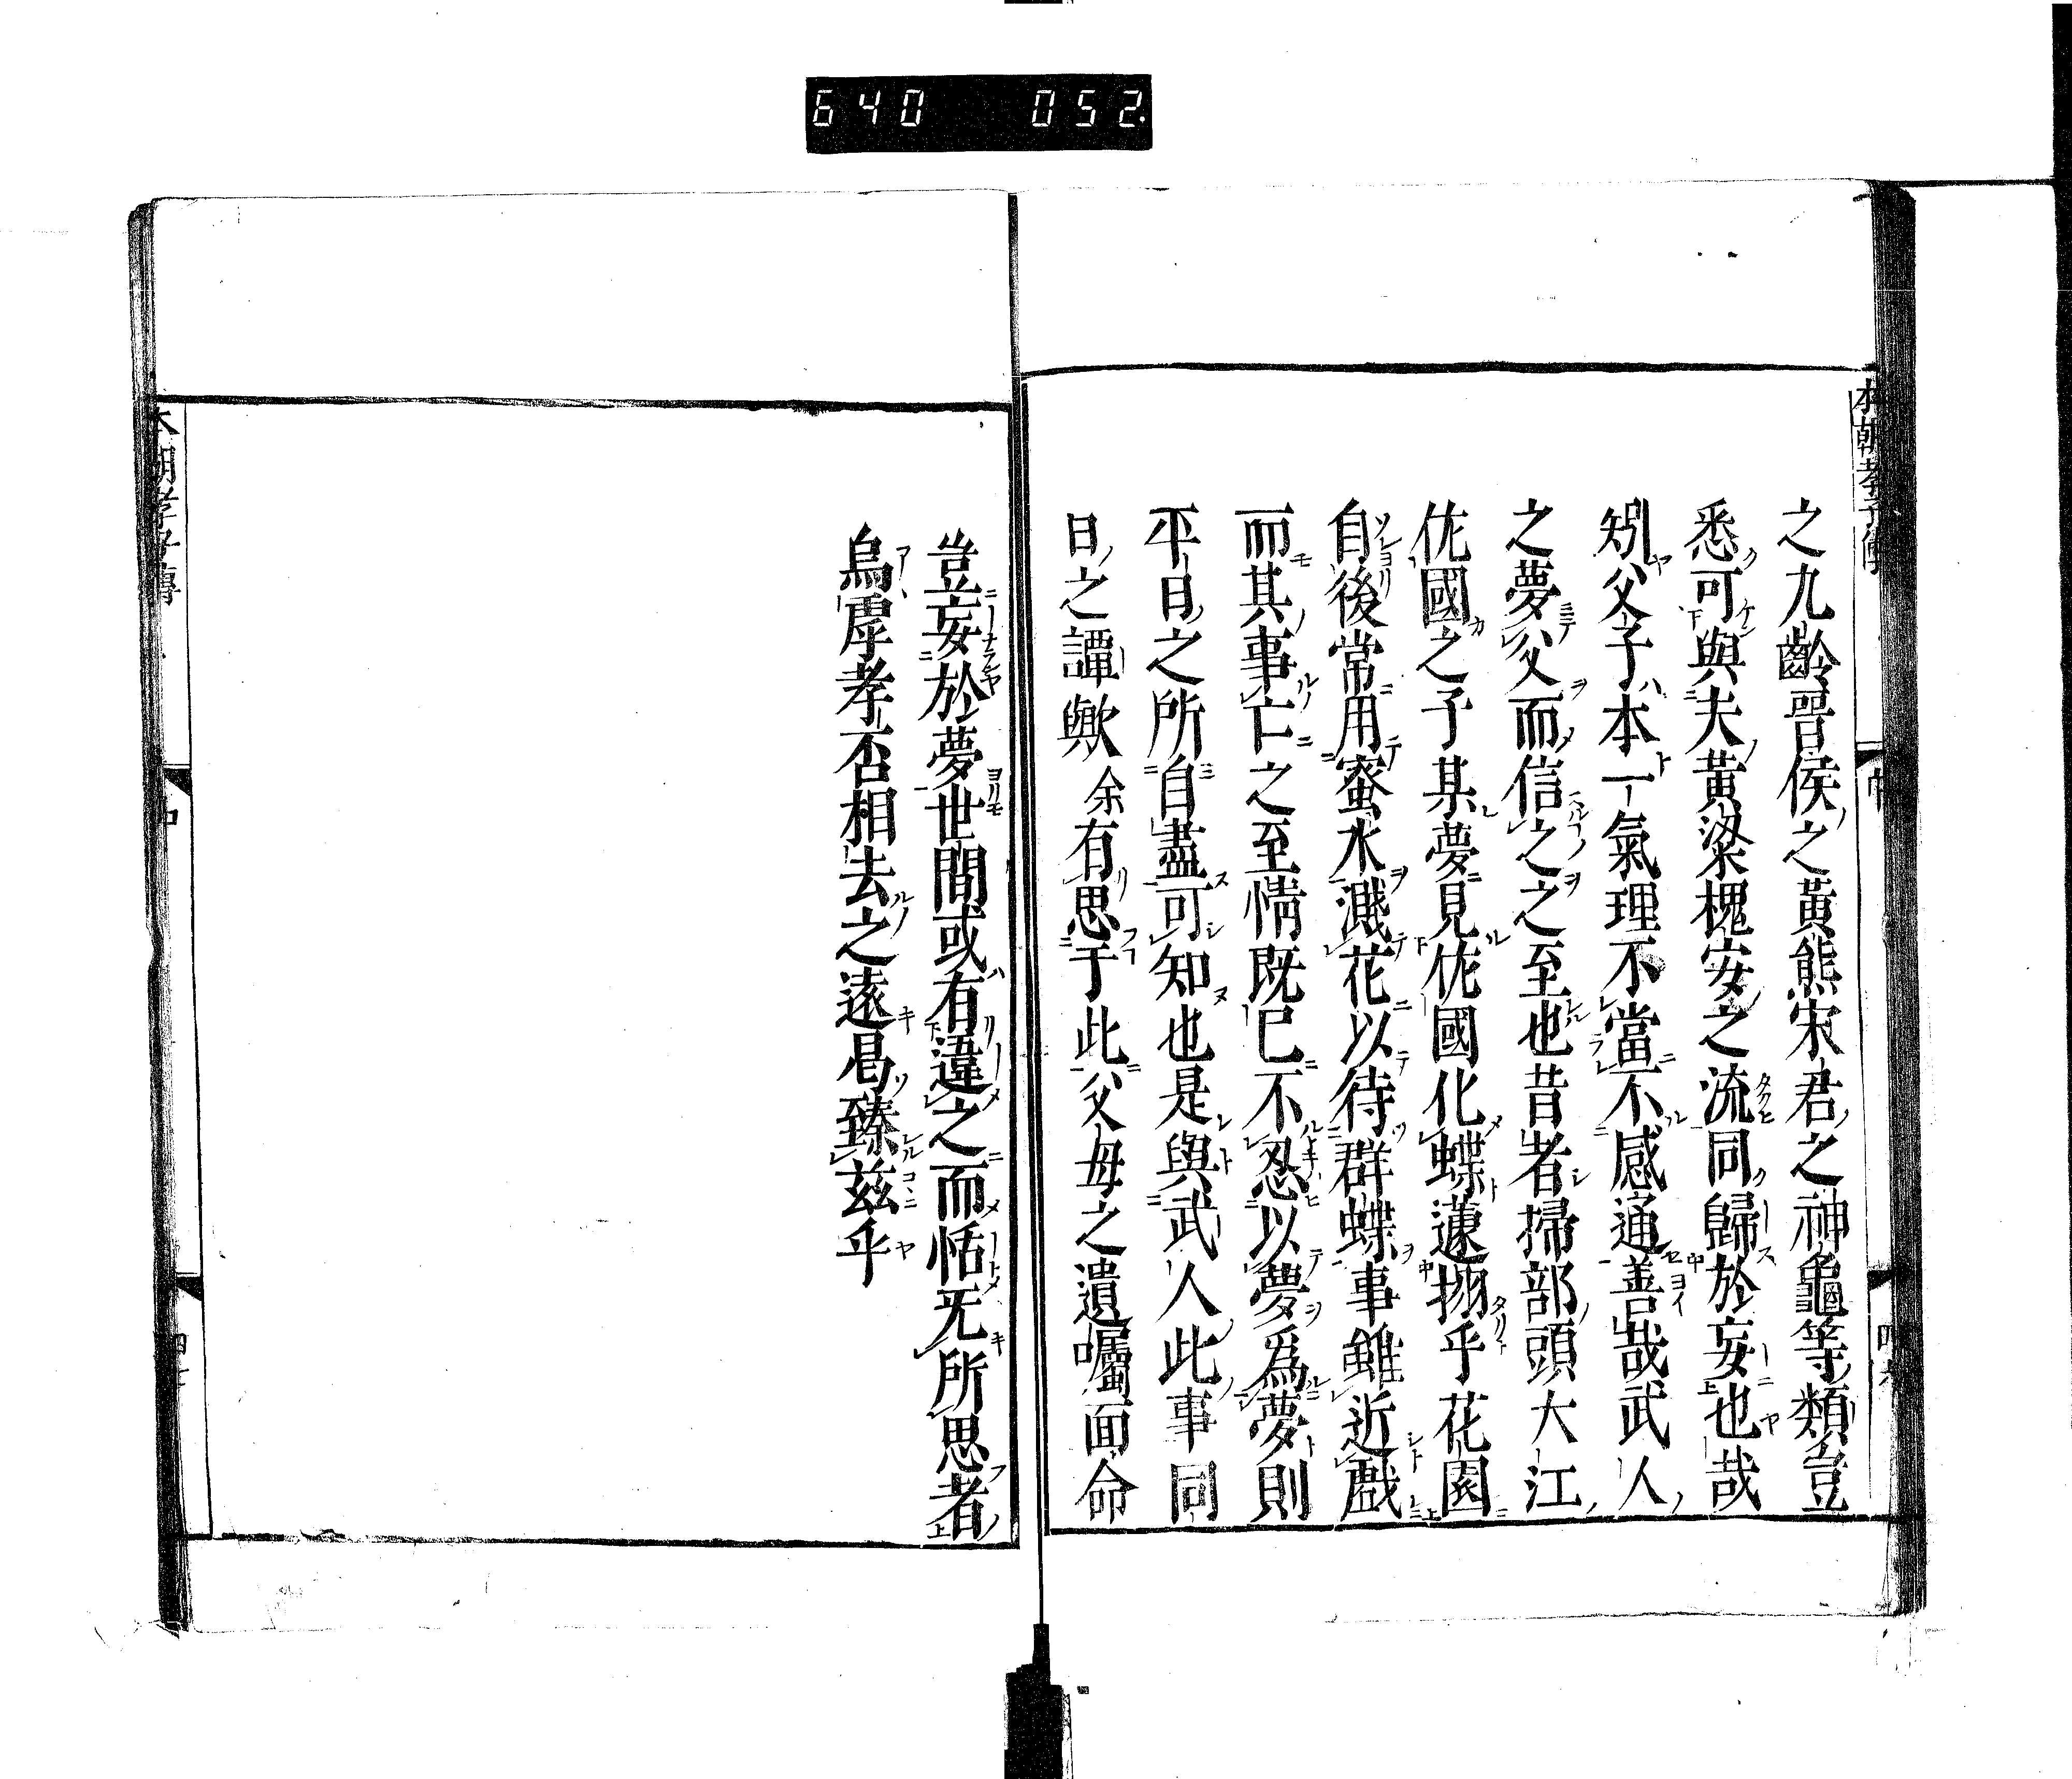 640 052.
本朝孝子傳 中
之九齡晉侯之黃熊宋君之神龜等類豈
悉可與夫黃粱槐安之流同歸於妄也哉
矧父子本一氣理不當不感通善哉武人
之夢父而信之之至也昔者掃部頭大江
佐國之子某夢見佐國化蝶蘧栩乎花園
自後常用蜜水濺花以待群蝶事雖近戲
而其事亡之至情既已不忍以夢爲夢則
平日之所自盡可知也是與武人此事同
日之譚歟余有思于此父母之遺囑面命
豈妄於夢世間或有違之而恬无所思者
烏虖孝否相去之遠曷臻茲乎
本朝孝子傳 中